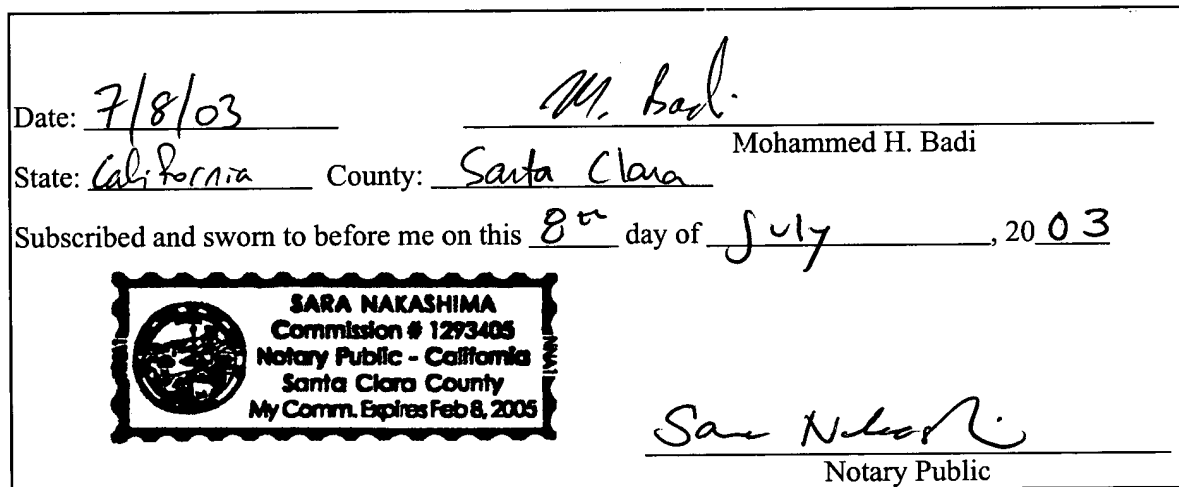 Date: 7/8/03 M. Badi
Mohammed H. Badi
State: California County: Santa Clara
Subscribed and sworn to before me on this 8th day of July, 2003
SARA NAKASHIMA
Commission # 1293405
Notary Public - California
Santa Clara County
My Comm. Expires Feb 8, 2005
Sara Nakashi
Notary Public